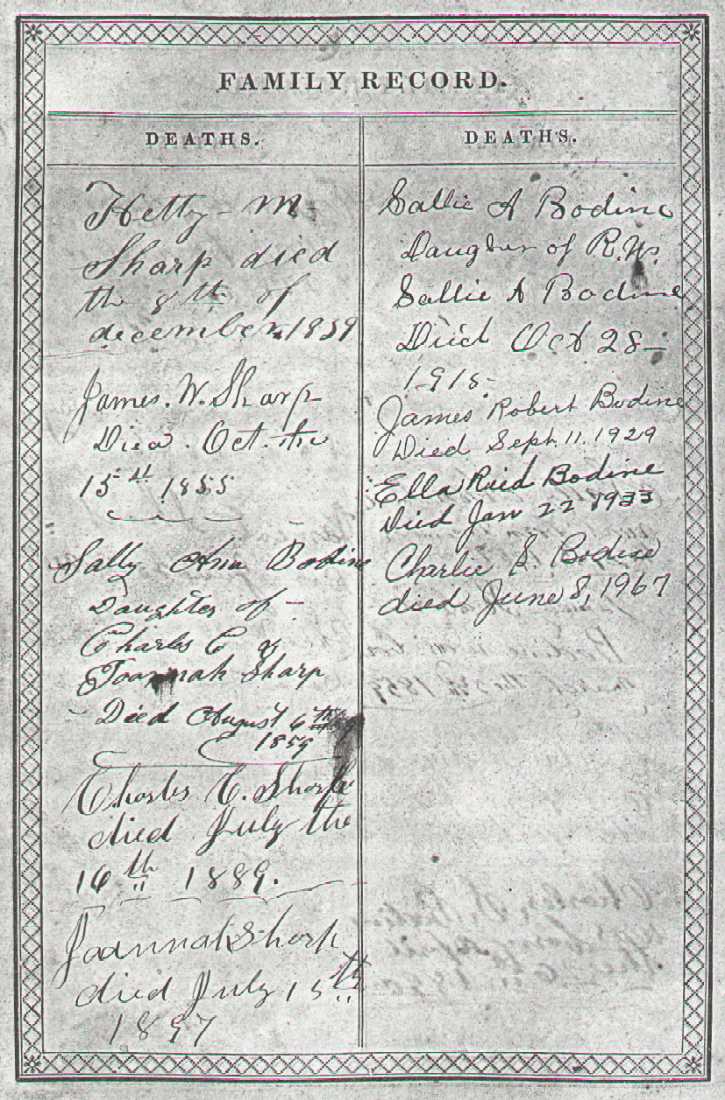 FAMILY RECORD.
DEATHS.
Hetty - M
Sharp died
the 8th of
december, 1859
James. W. Sharp
Died. Oct. the
15th 1855
Sally Ann Bodine
Daughter of -
Charles C &
Joannah Sharp
- Died August 6th
1859
Charles C. Sharp
died July the
16th 1889.
Joannah Sharp
died July 15th
1897
DEATHS.
Sallie A Bodine
Daughter of R. W.
Sallie A Bodine
Died Oct 28 -
1918 -
James Robert Bodine
Died Sept. 11. 1929
Ella Reid Bodine
Died Jan 22 1933
Charlie S. Bodine
died June 8, 1967